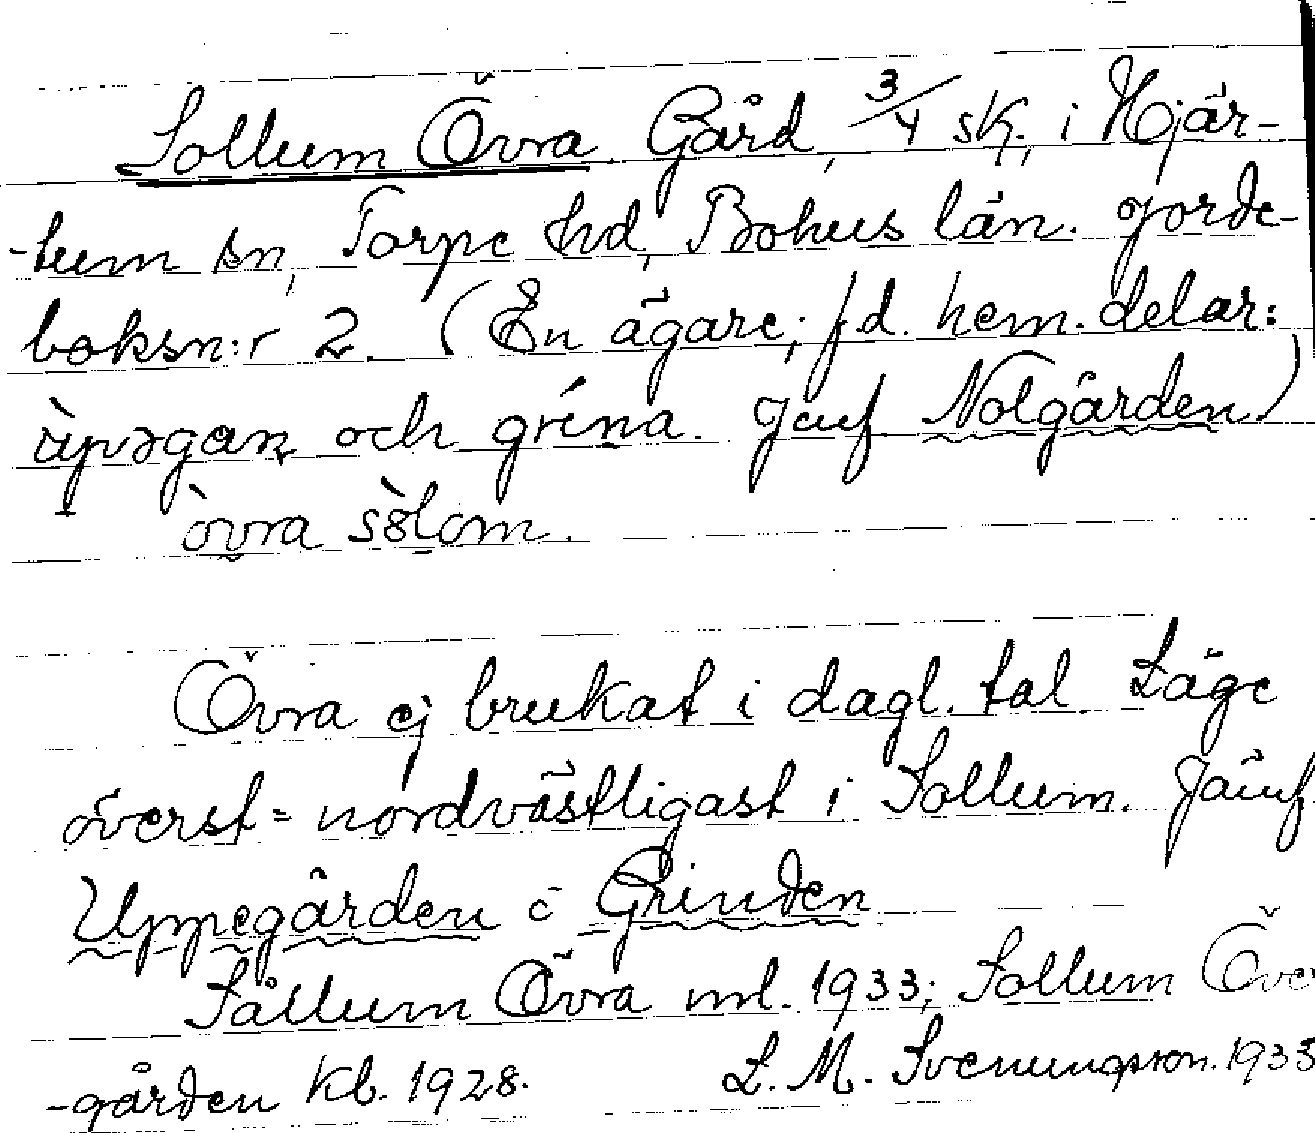 Sollum Övra Gård, 3/4 sk., i Hjär-
-tum sn, Torpe hd, Bohus län. Jorde-
boksn:r 2. (En ägare; f.d. hem.delar:
och grena. Jämf Nolgården)
òvra sòlom.
Övra ej brukat i dagl. tal. Läge
överst = nordvästligast i Sollum. Jämf
Uppegården o Grinden
Sållum Övra ml. 1933; Sollum Över
-gården kb. 1928. L. M. Svenungsson. 1935